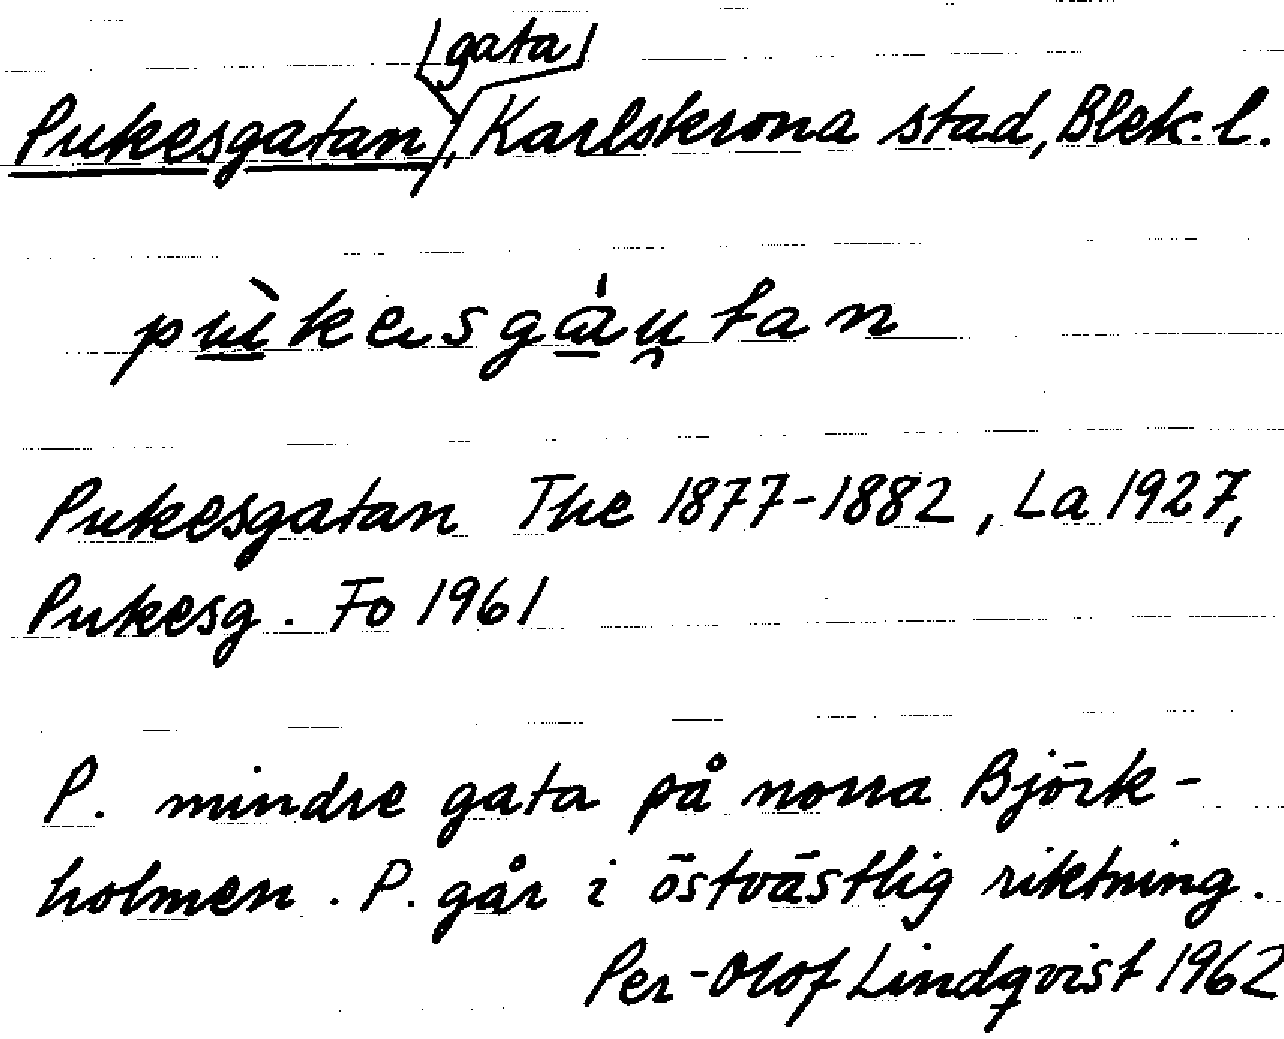 [gata]
Pukesgatan, Karlskrona stad, Blek. l.
pukesgautan
Pukesgatan The 1877-1882, La 1927,
Pukesg. Fo 1961
P. mindre gata på norra Björk-
holmen. P. går i östvästlig riktning.
Per-Olof Lindqvist 1962